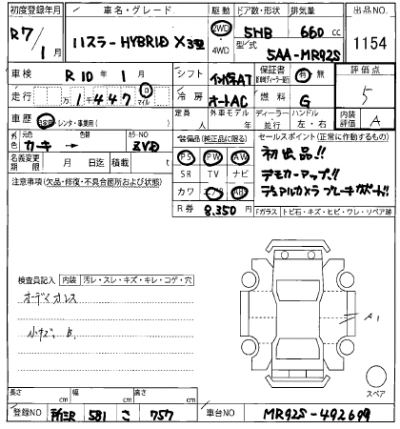 初度登録年月
車名・グレード
駆動
ドア数・形状
排気量
出品NO.
R7/1月
ハスラー HYBRID X 3型
2WD
4WD
5HB
660 cc
型式
5AA-MR92S
1154
車検
R10年1月
シフト
インパネAT
保証書
有・無
評価点
走行
万1千447
km
マイル
冷房
オートAC
燃料
G
5
車歴
自家用・レンタ・事業用( )
定員
人
外車モデル
年
ディーラー
並行
ハンドル
左・右
内装評価
A
元色
カーキ→
色替
カラーNO
ZVD
装備品(純正品に限る)
PS PW AW
SR TV ナビ
カワ エアB ABS
セールスポイント(正常に作動するもの)
初出品!!
デモカーアップ!!
デュアルカメラブレーキサポート!!
名義変更期限
月 日迄
積載
t
R券
8,350 円
注意事項(欠品・修復・不具合箇所および状態)
Fガラス
トビ石・キズ・ヒビ・ワレ・リペア跡
検査員記入
内装
汚レ・スレ・キズ・キレ・コゲ・穴
オーディオレス
小キズ
A1
スペア
長さ cm
幅 cm
高さ cm
登録NO
所沢 581 こ 757
車台NO
MR92S-492699